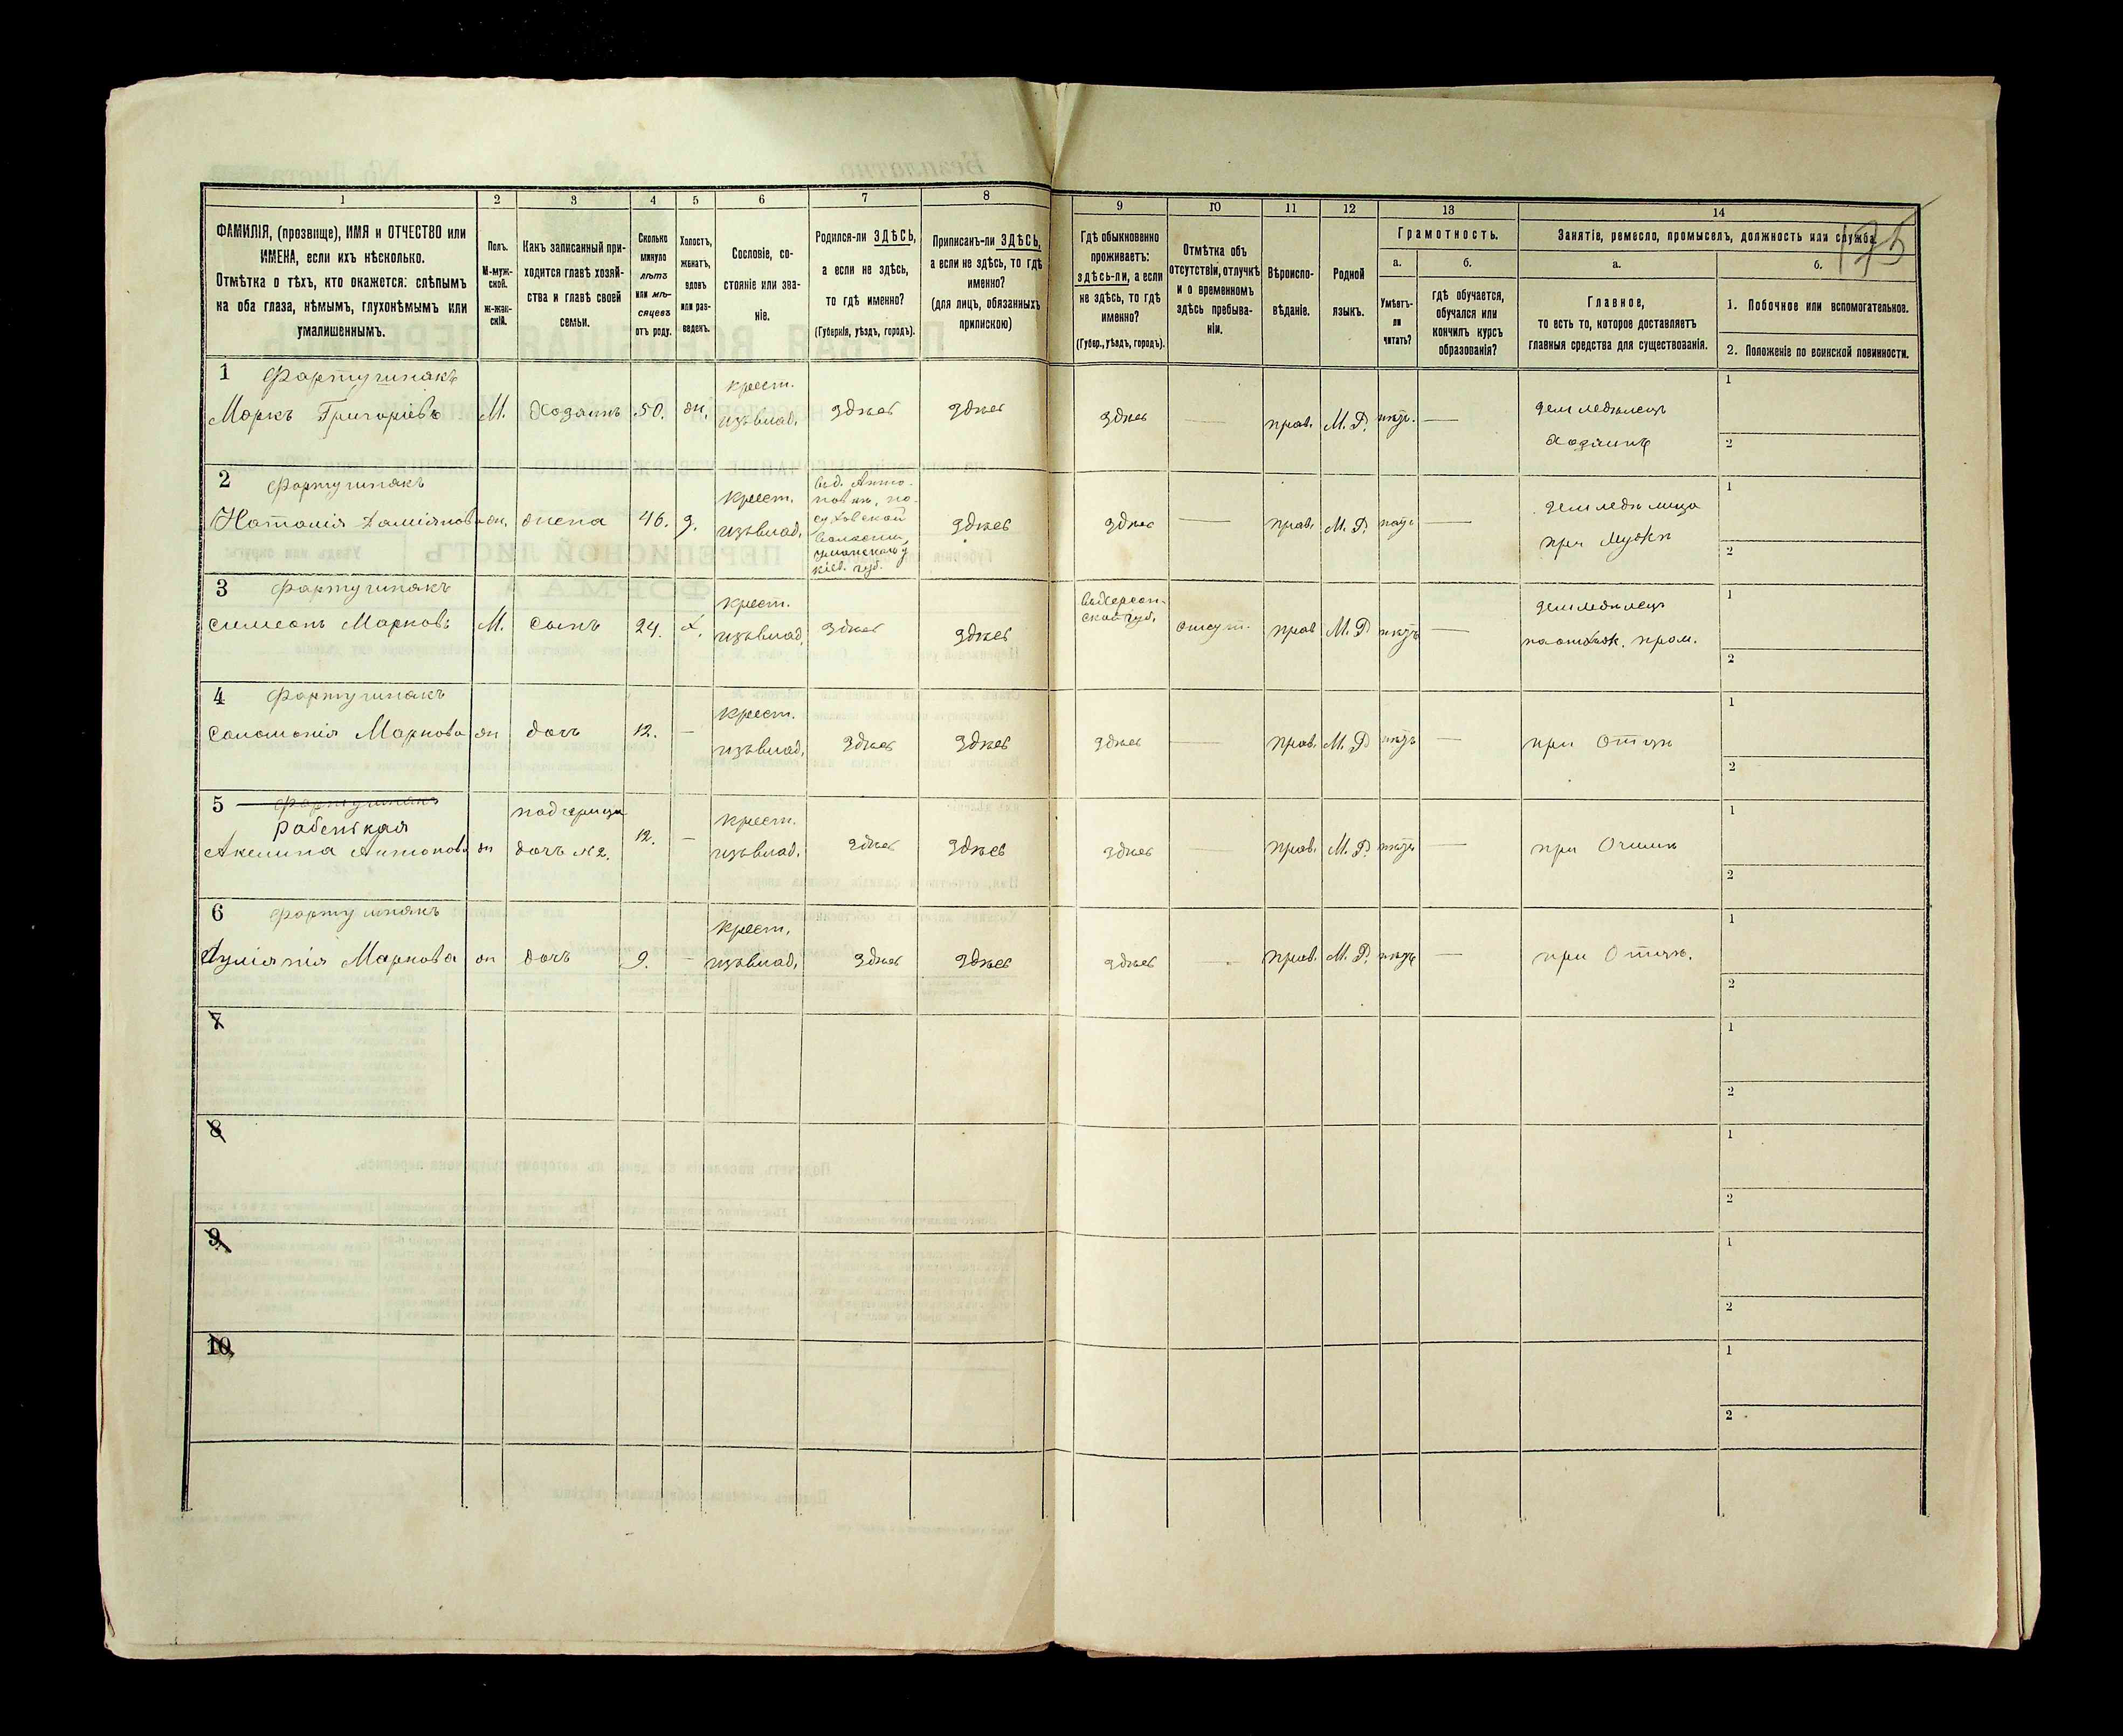 175
1 2 3 4 5 6 7 8 9 10 11 12 13 14
ФАМИЛІЯ, (прозвище), ИМЯ и ОТЧЕСТВО или
ИМЕНА, если ихъ нѣсколько.
Отмѣтка о тѣхъ, кто окажется: слѣпымъ
на оба глаза, нѣмымъ, глухонѣмымъ или
умалишеннымъ.
Полъ.
М-муж-
ской.
Ж-жен-
скій.
Какъ записанный при-
ходится главѣ хозяй-
ства и главѣ своей
семьи.
Сколько
минуло
лѣтъ
или мѣ-
сяцевъ
отъ роду.
Холостъ,
женатъ,
вдовъ
или раз-
веденъ.
Сословіе, со-
стояніе или зва-
ніе.
Родился-ли ЗДѢСЬ,
а если не здѣсь,
то гдѣ именно?
(Губернія, уѣздъ, городъ).
Приписанъ-ли ЗДѢСЬ,
а если не здѣсь, то гдѣ
именно?
(для лицъ, обязанныхъ
припискою)
Гдѣ обыкновенно
проживаетъ:
здѣсь-ли, а если
не здѣсь, то гдѣ
именно?
(Губер., уѣздъ, городъ).
Отмѣтка объ
отсутствіи, отлучкѣ
и о временномъ
здѣсь пребыва-
ніи.
Вѣроиспо-
вѣданіе.
Родной
языкъ.
Грамотность.
а.
Умѣетъ-
ли
читать?
б.
гдѣ обучается,
обучался или
кончилъ курсъ
образованія?
Занятіе, ремесло, промыселъ, должность или служба.
а.
Главное,
то есть то, которое доставляетъ
главныя средства для существованія.
б.
1. Побочное или вспомогательное.
2. Положеніе по воинской повинности.
1 Фартушнякъ крест. земледѣлецъ 1
Маркъ Григоріевъ М. Хозяинъ 50. ж. изъ влад. здѣсь здѣсь здѣсь — прав. М. Р. — Хозяинъ 2
2 Фартушнякъ крест. земледѣлица 1
Наталія Даміянова ж. жена 46. з. изъ влад. здѣсь здѣсь — прав. М. Р. — при Мужѣ 2
въ д. Анто-
новкѣ,
волости,
уманскаго у
кіев. губ.
3 Фартушнякъ крест. въ Херсон- земледѣлецъ 1
ской губ.
Симеонъ Марковъ М. сынъ 24. х. изъ влад. здѣсь здѣсь отсут. прав М. Р — на отхож. пром. 2
4 Фартушнякъ крест. 1
Саломонія Маркова ж дочь 12. — изъ влад. здѣсь здѣсь здѣсь — прав. М. Р — при Отцѣ 2
5 Фартушнякъ падчерица крест. 1
Рабенькая
Акелина Антонова ж дочь №2. 12. — изъ влад. здѣсь здѣсь здѣсь — прав. М. Р. — при Отчимѣ 2
6 Фартушнякъ крест. 1
Маркова ж дочь 9. — изъ влад. здѣсь здѣсь здѣсь — прав. М. Р. — при Отцѣ. 2
7 1
2
8 1
2
9 1
2
10 1
2